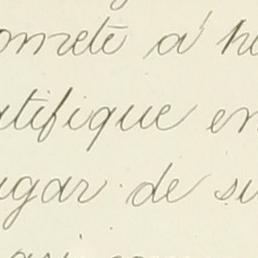 omete a' h
atifique en
ugar de su